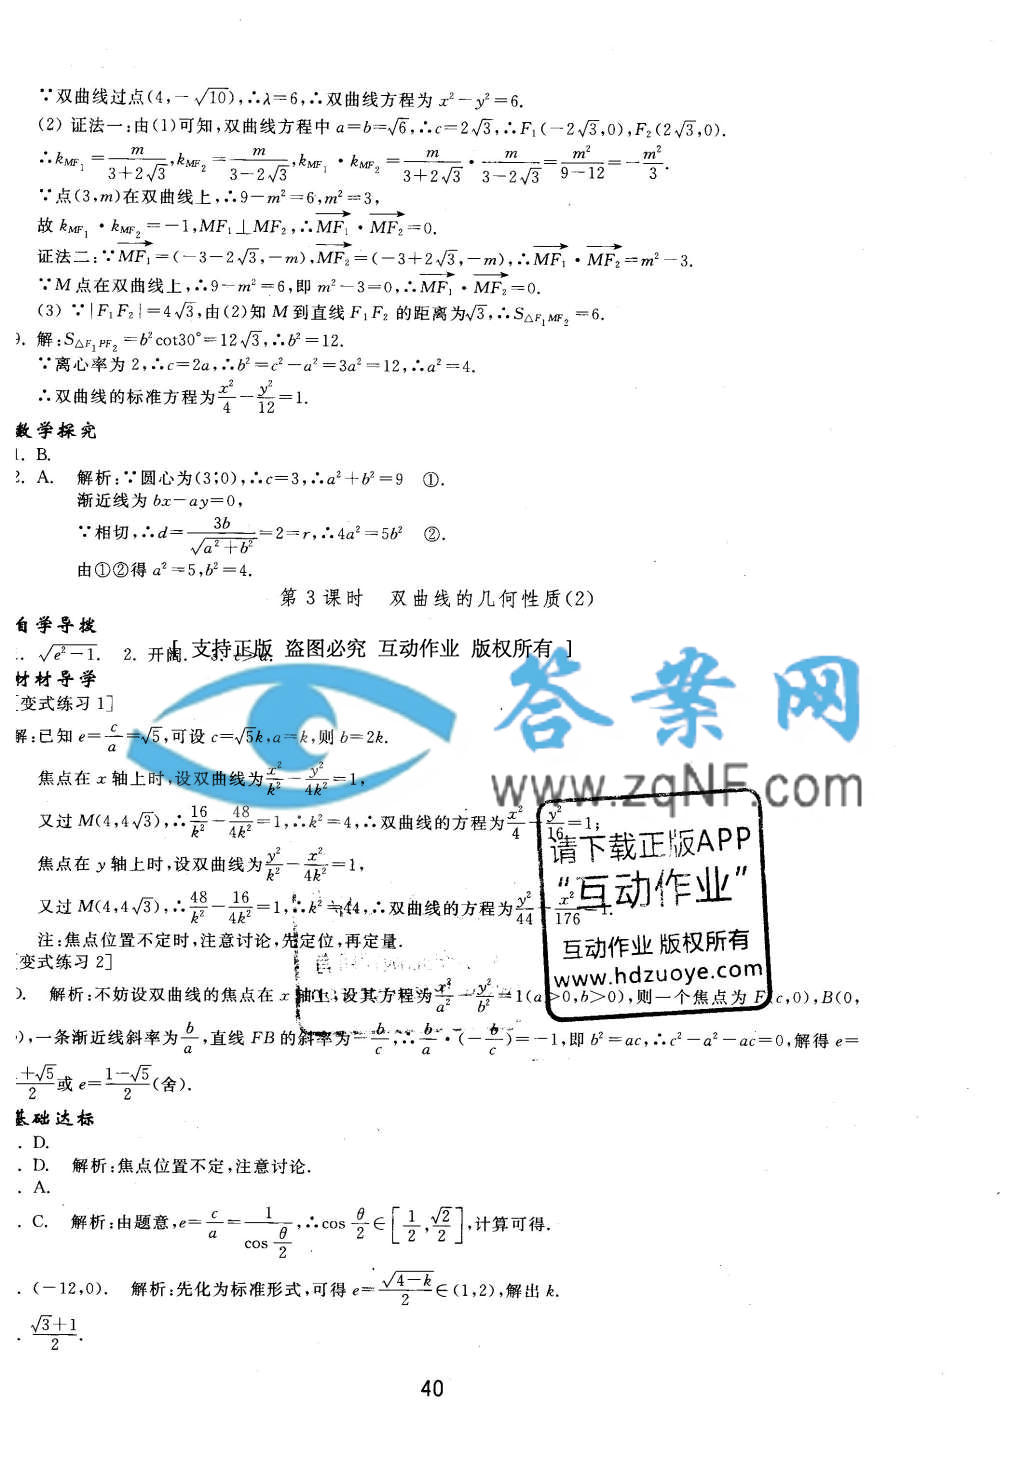 ∵双曲线过点(4,-√10),∴λ=6,∴双曲线方程为 x²-y²=6.
(2) 证法一:由(1)可知,双曲线方程中 a=b=√6,∴c=2√3,∴F₁(-2√3,0),F₂(2√3,0).
∴k_{MF₁}=m/(3+2√3),k_{MF₂}=m/(3-2√3),k_{MF₁}·k_{MF₂}=m/(3+2√3)·m/(3-2√3)=m²/(9-12)=-m²/3.
∵点(3,m)在双曲线上,∴9-m²=6,m²=3,
故 k_{MF₁}·k_{MF₂}=-1,MF₁⊥MF₂,∴→MF₁·→MF₂=0.
证法二:∵→MF₁=(-3-2√3,-m),→MF₂=(-3+2√3,-m),∴→MF₁·→MF₂=m²-3.
∵M点在双曲线上,∴9-m²=6,即 m²-3=0,∴→MF₁·→MF₂=0.
(3) ∵|F₁F₂|=4√3,由(2)知 M 到直线 F₁F₂ 的距离为√3,∴S_{△F₁MF₂}=6.
9. 解:S_{△F₁PF₂}=b²cot30°=12√3,∴b²=12.
∵离心率为 2,∴c=2a,∴b²=c²-a²=3a²=12,∴a²=4.
∴双曲线的标准方程为x²/4-y²/12=1.
数学探究
1. B.
2. A. 解析:∵圆心为(3,0),∴c=3,∴a²+b²=9 ①.
渐近线为 bx-ay=0,
∵相切,∴d=3b/√(a²+b²)=2=r,∴4a²=5b² ②.
由①②得 a²=5,b²=4.
第 3 课时 双曲线的几何性质(2)
自学导拨
. √(e²-1). 2. 开阔. 3. c>a.
[ 支持正版 盗图必究 互动作业 版权所有 ]
材料导学
[变式练习 1]
解:已知 e=c/a=√5,可设 c=√5k,a=k,则 b=2k.
焦点在 x 轴上时,设双曲线为x²/k²-y²/4k²=1,
又过 M(4,4√3),∴16/k²-48/4k²=1,∴k²=4,∴双曲线的方程为x²/4-y²/16=1;
焦点在 y 轴上时,设双曲线为y²/k²-x²/4k²=1,
又过 M(4,4√3),∴48/k²-16/4k²=1,∴k²=44,∴双曲线的方程为y²/44-x²/176=1.
注:焦点位置不定时,注意讨论,先定位,再定量.
[变式练习 2]
D. 解析:不妨设双曲线的焦点在 x 轴上,设其方程为x²/a²-y²/b²=1(a>0,b>0),则一个焦点为 F(c,0),B(0,
),一条渐近线斜率为b/a,直线 FB 的斜率为-b/c,∴b/a·(-b/c)=-1,即 b²=ac,∴c²-a²-ac=0,解得 e=
+√5/2或 e=(1-√5)/2(舍).
基础达标
. D.
. D. 解析:焦点位置不定,注意讨论.
. A.
. C. 解析:由题意,e=c/a=1/cos(θ/2),∴cos θ/2∈[1/2,√2/2],计算可得.
. (-12,0). 解析:先化为标准形式,可得 e=√(4-k)/2∈(1,2),解出 k.
. (√3+1)/2.
40
答案网
www.zqNF.com
请下载正版APP
“互动作业”
互动作业 版权所有
www.hdzuoye.com